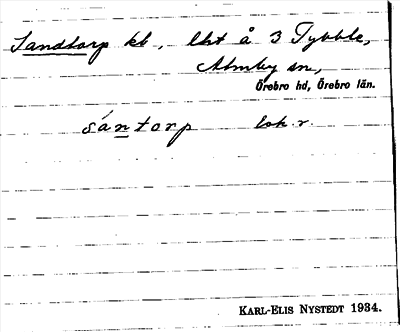 Sandtorp kb, lht å 3 Tybble,
Almby sn,
Örebro hd, Örebro län.
sántorp lok. r.
KARL-ELIS NYSTEDT 1934.